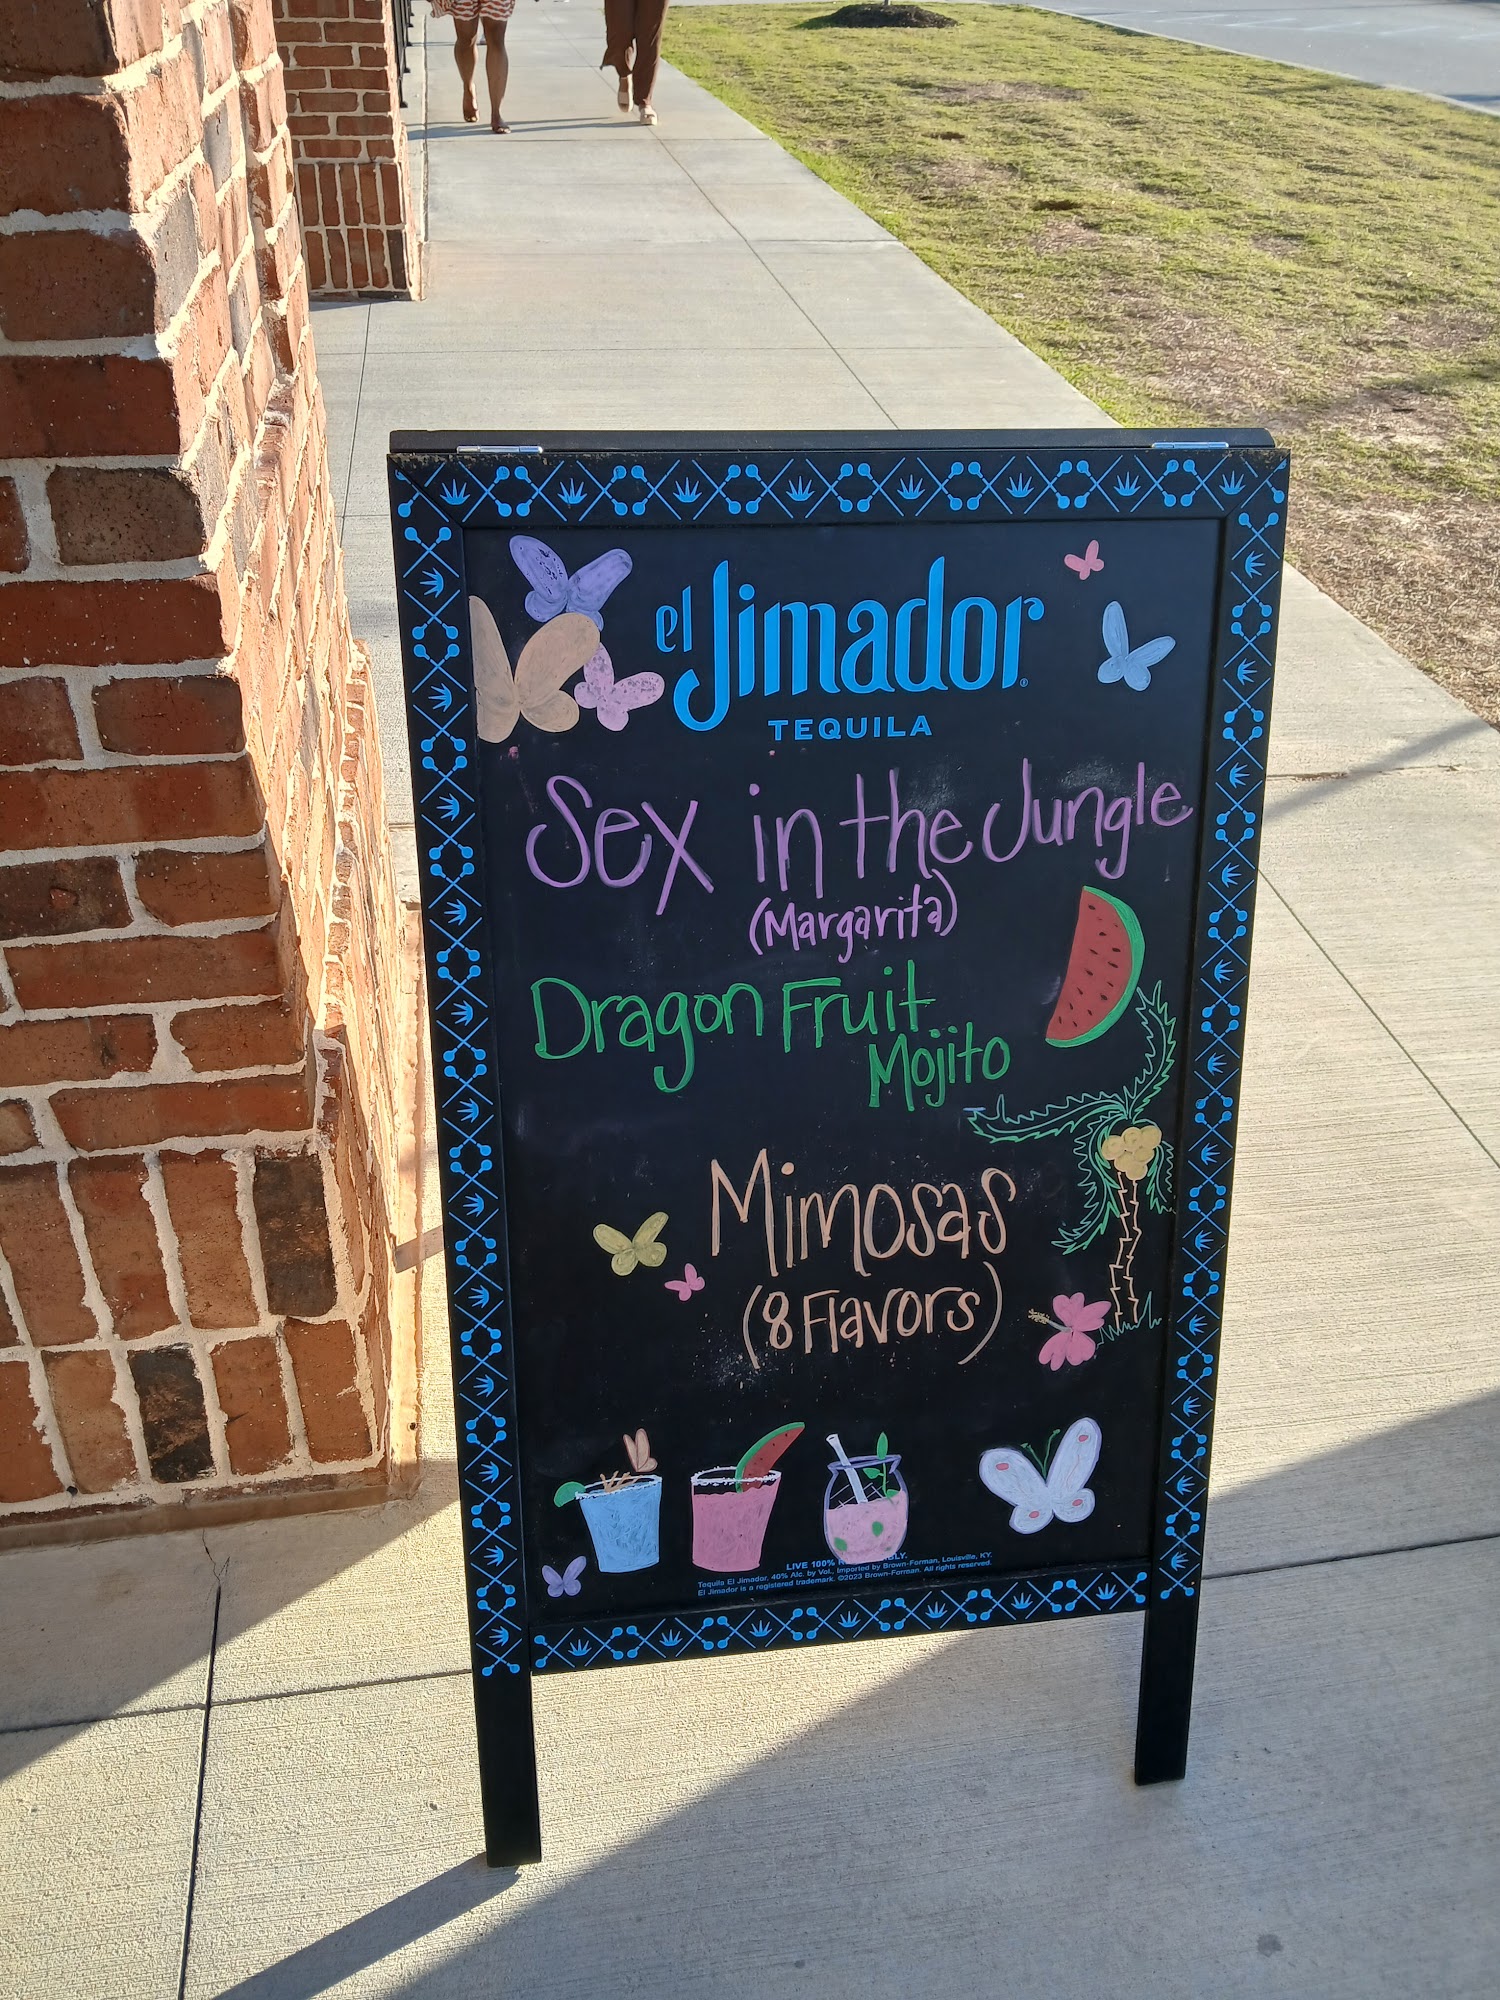 el Jimador®
TEQUILA
Sex in the Jungle
(Margarita)
Dragon Fruit
Mojito
Mimosas
(8 Flavors)
LIVE 100%
Tequila El Jimador, 40% Alc. by Vol., Imported by Brown-Forman, Louisville, KY.
El Jimador is a registered trademark. ©2023 Brown-Forman. All rights reserved.